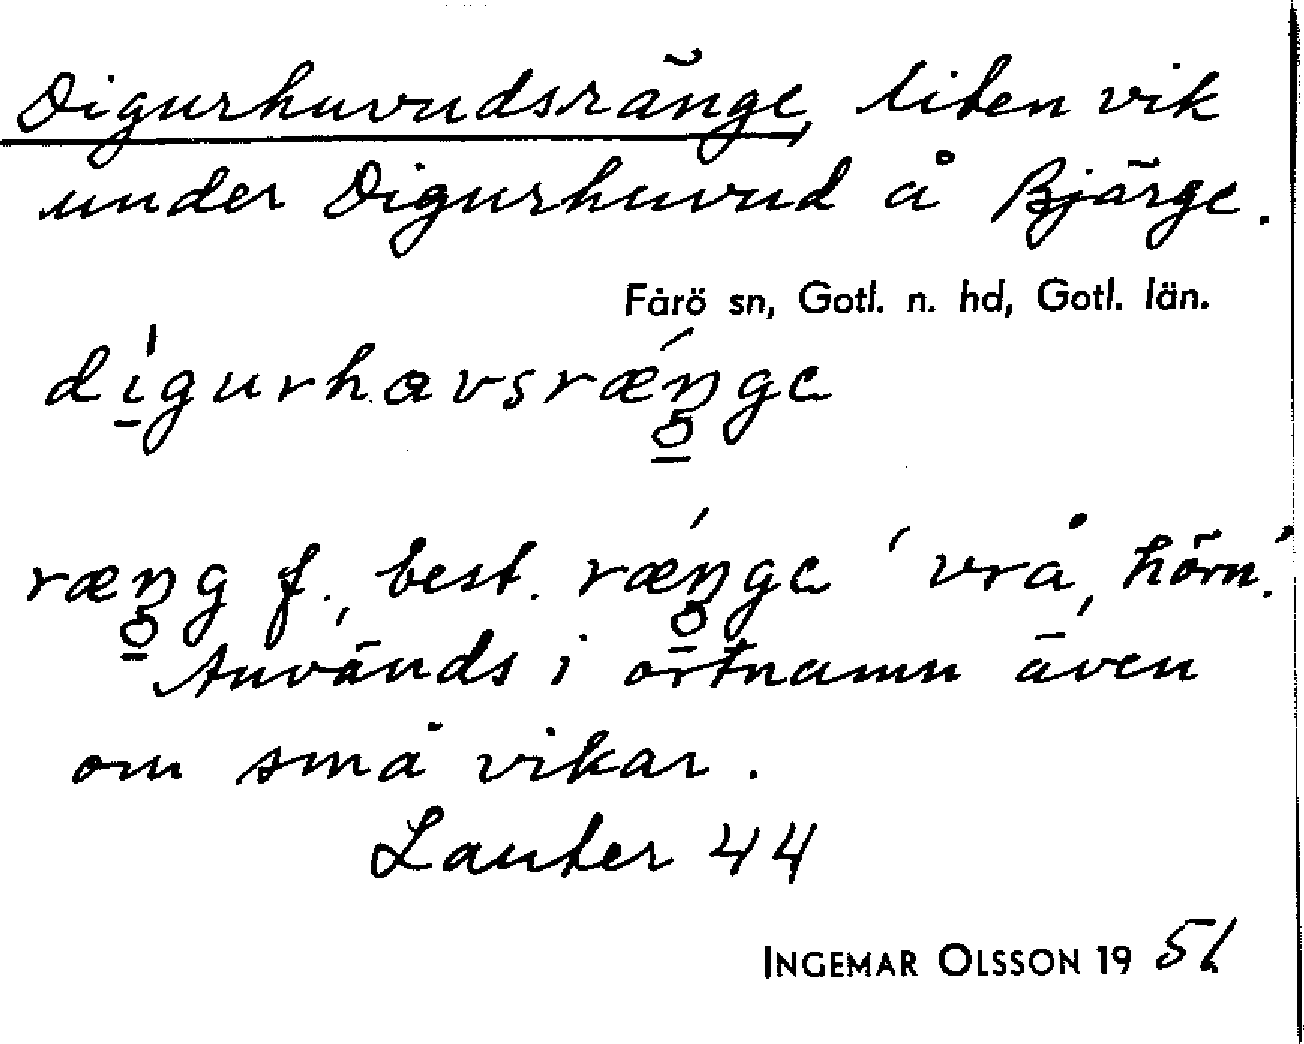 Digurhuvudsränge, liten vik
under Digurhuvud å Bjärge.
Fårö sn, Gotl. n. hd, Gotl. län.
dígurhavsrǽŋge
ræŋg f., best. rǽŋge 'vrå, hörn'.
Används i ortnamn även
om små vikar.
Lauter 44
INGEMAR OLSSON 1951